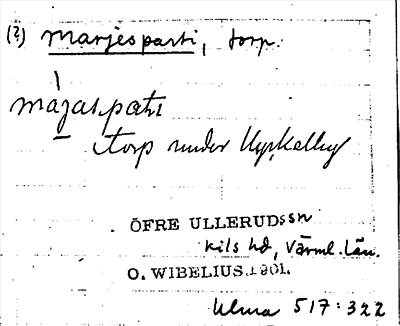 (?) Marjesparti, torp.
májaspati
torp under Nyckelby
ÖFRE ULLERUDSSN
Kils hd, Värml. län.
O. WIBELIUS. 1901.
Ulma 517:322